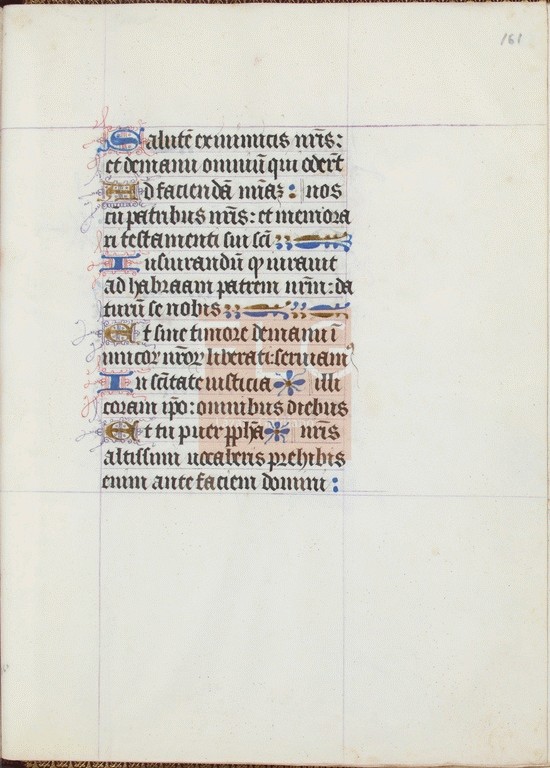 161
Salutē ex inimicis nr̄is:
et de manu omniū qui oder̄t
Ad faciendā mīaꝫ : nos
cū patribus nr̄is: et memora
ri testamenti sui sc̄i
Iusiurandū qͥ iurauit
ad habraam patrem nr̄m: da
turū se nobis
Et sine timore de manu ī
imicoꝝ nr̄oꝝ liberati: seruiamꝰ
In sc̄itate iusticia illi
coram ip̄o: omnibus diebus
Et tu puer ꝓph̄a nr̄is
altissimi uocaberis prehibis
enim ante faciem domini :